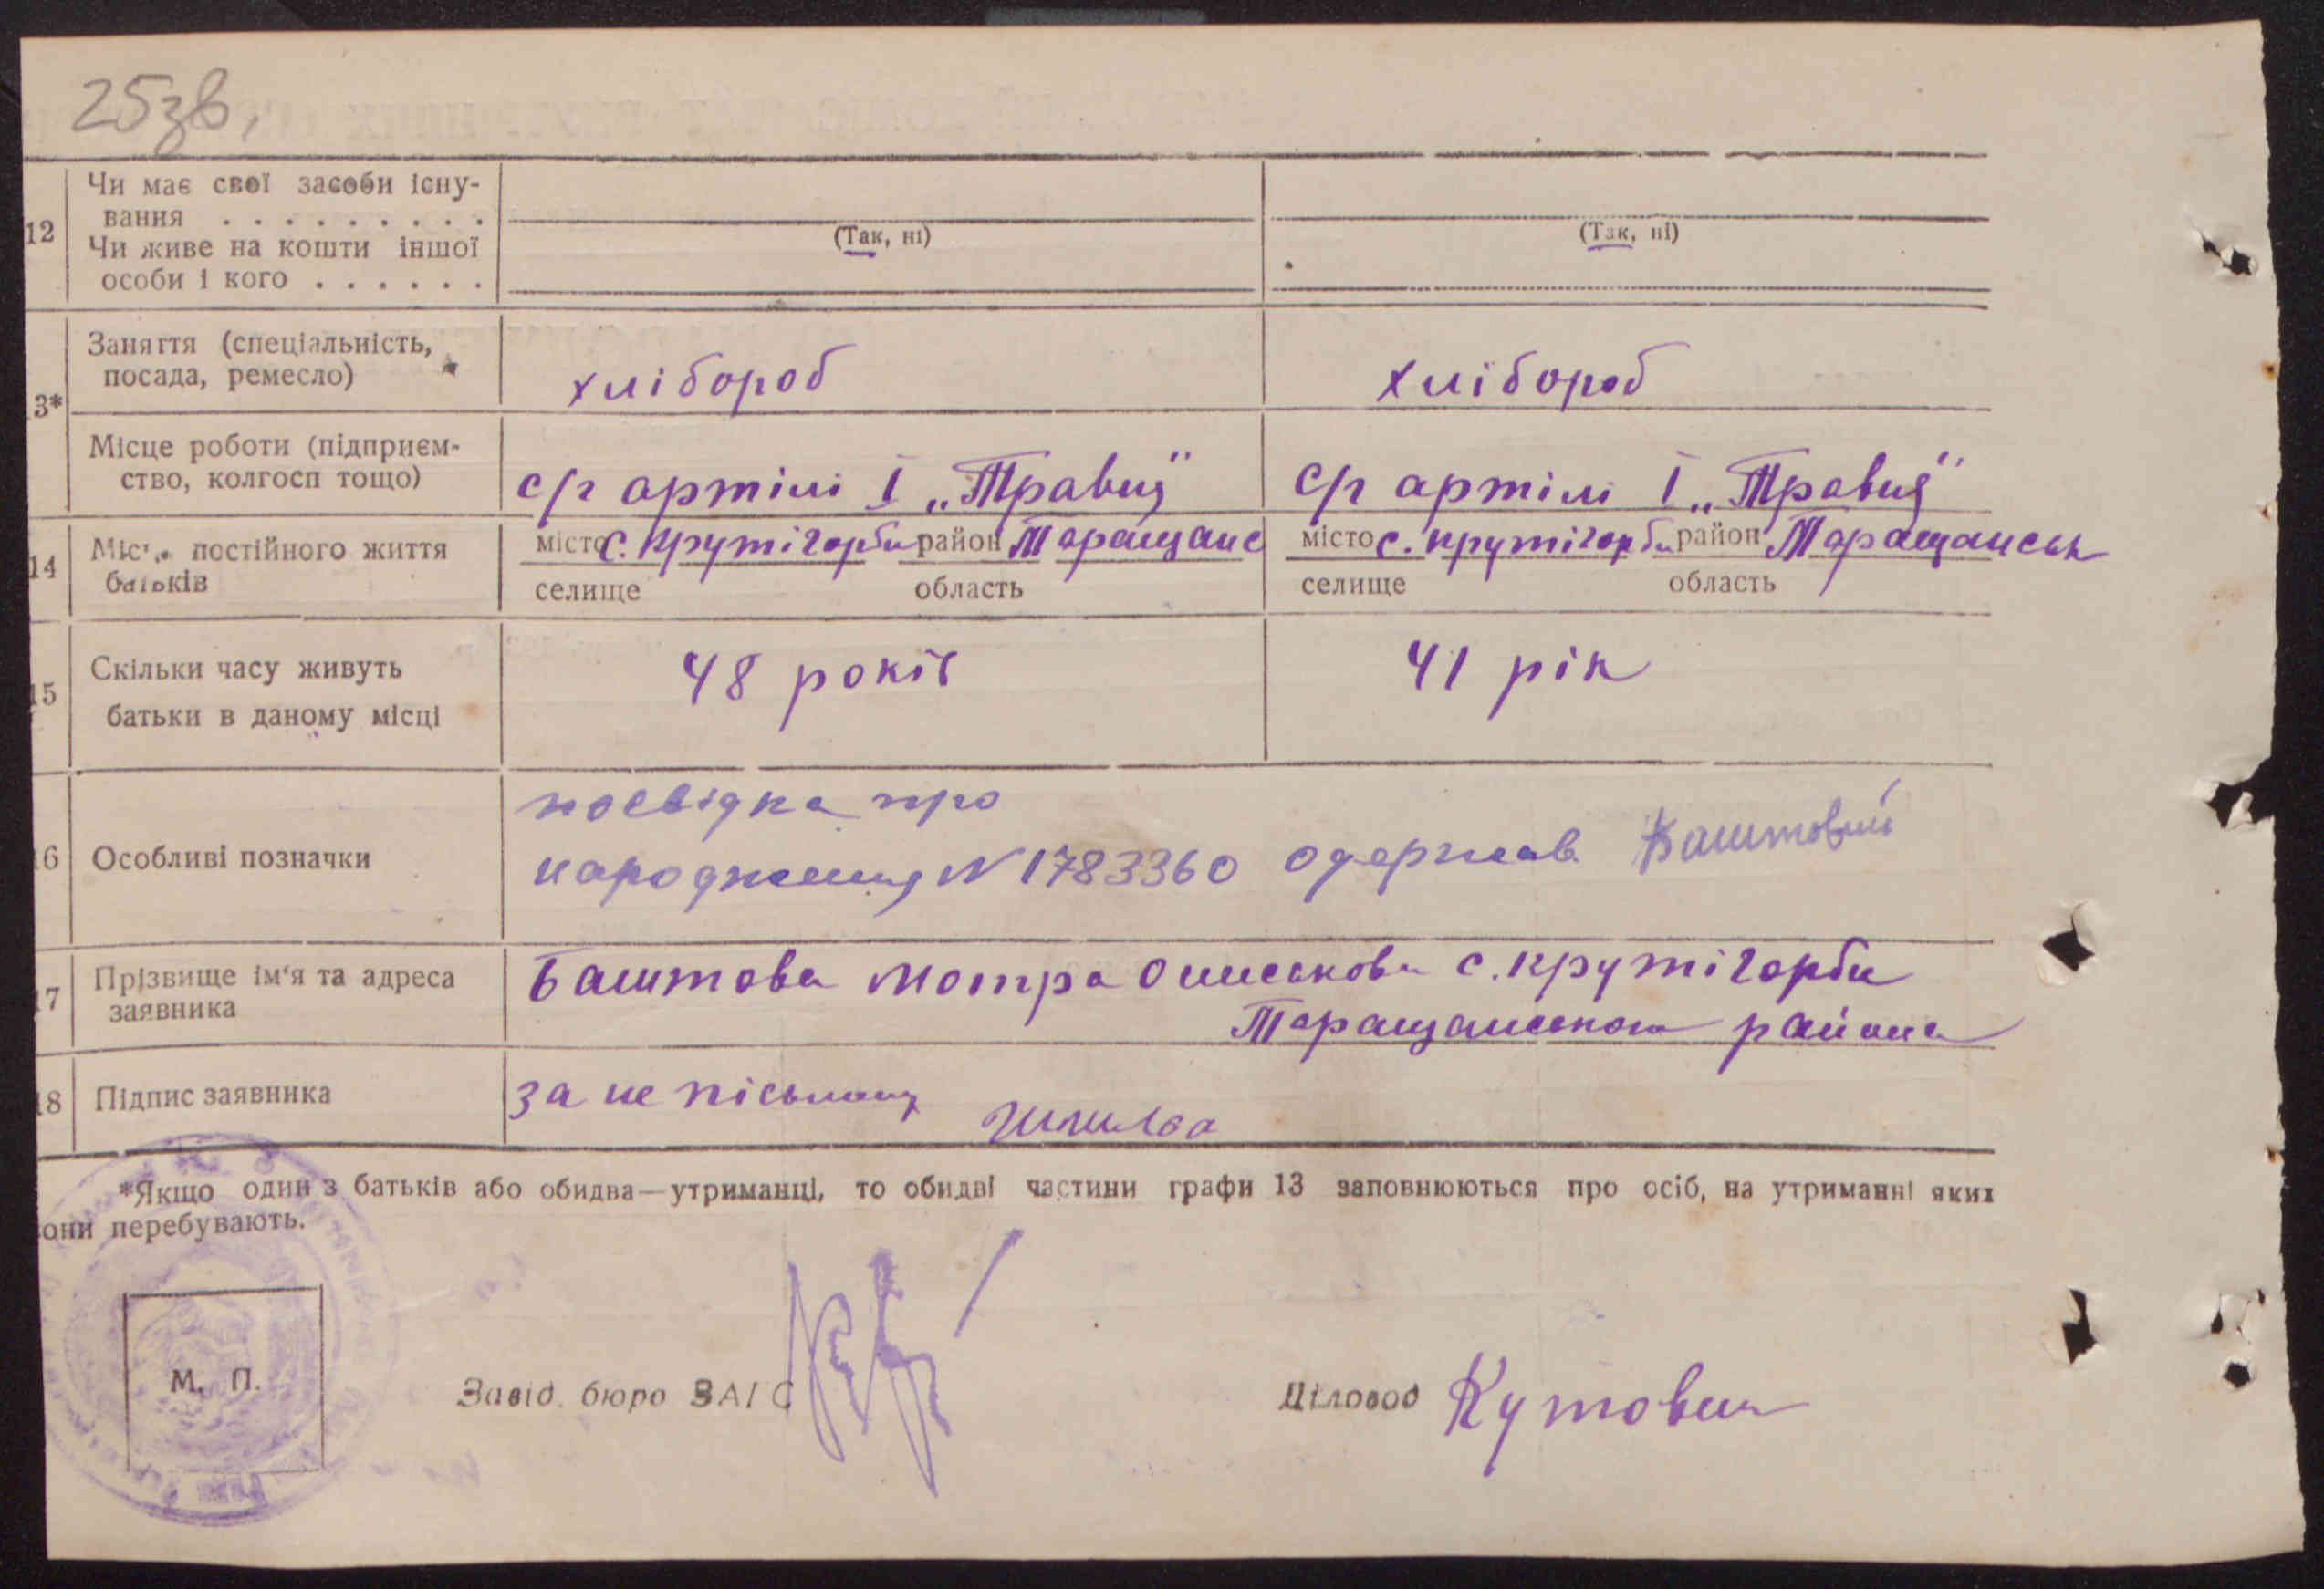 25зв.
12 Чи має свої засоби існу-
вання . . . . . . . . .
(Так, ні) (Так, ні)
Чи живе на кошти іншої
особи і кого . . . . . .
3* Заняття (спеціальність,
посада, ремесло) хлібороб хлібороб
Місце роботи (підприєм-
ство, колгосп тощо) с/г артілі 1 „Травня" с/г артілі 1 „Травня"
14 Місце постійного життя місто с. Крутігорби район Таращанс місто с. Крутігорби район Таращанськ
батьків селище область селище область
15 Скільки часу живуть 48 років 41 рік
батьки в даному місці
посвідка про
16 Особливі позначки народження N 1783360 одержав Баштовий
17 Прізвище ім'я та адреса Баштова Мотра с. Крутігорби
заявника Таращанського района
18 Підпис заявника за не пісьмену
*Якщо один з батьків або обидва—утриманці, то обидві частини графи 13 заповнюються про осіб, на утриманні яких
вони перебувають.
М. П.
Завід. бюро ЗАГС Діловод Кутовий